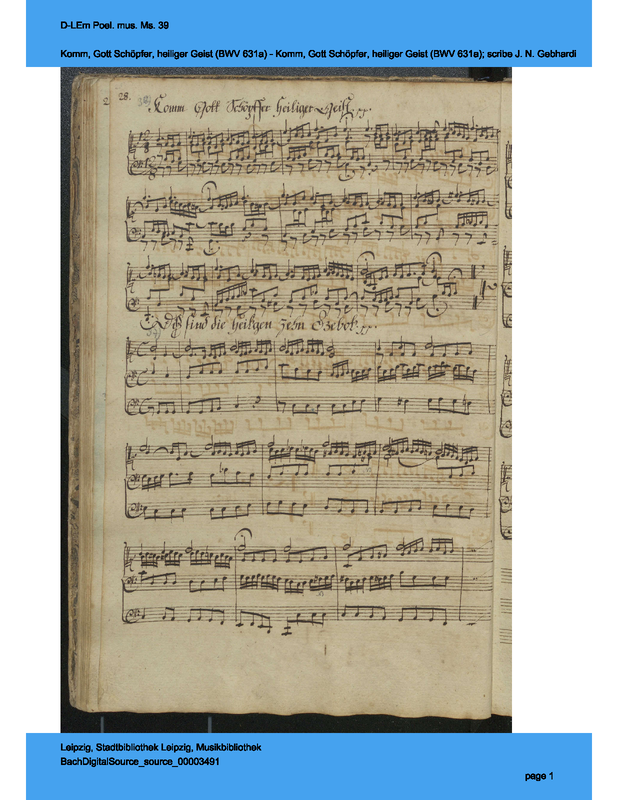 D-LEm Poel. mus. Ms. 39
Komm, Gott Schöpfer, heiliger Geist (BWV 631a) - Komm, Gott Schöpfer, heiliger Geist (BWV 631a); scribe J. N. Gebhardi
2 28.
Komm Gott Schöpffer heiliger Geist
sind die heilgen zehn Gebot
Leipzig, Stadtbibliothek Leipzig, Musikbibliothek
BachDigitalSource_source_00003491
page 1